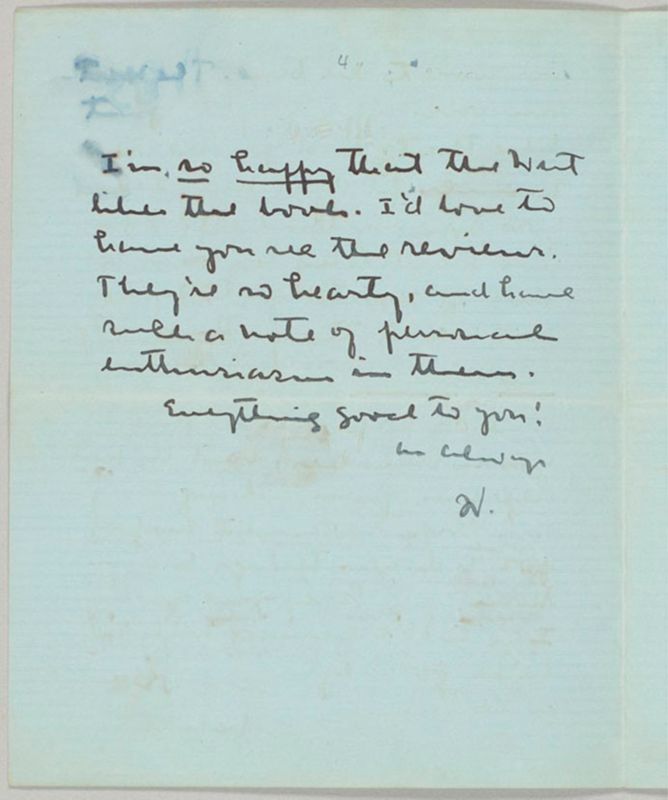 4
I'm so happy that the West
likes the book. I'd love to
have you see the reviews.
They're so hearty, and have
such a note of personal
enthusiasm in them.
Everything good to you!
as always
W.